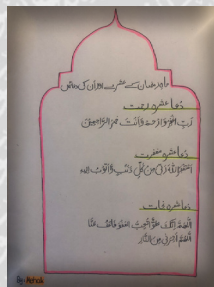 ماہ رمضان کے عشرے اور ان کی دعائیں
دعا عشرہ رحمت
رَبِّ اغْفِرْ وَارْحَمْ وَاَنْتَ خَيْرُ الرَّاحِمِيْنَ
دعا عشرہ مغفرت
اَسْتَغْفِرُ اللهَ رَبِّيْ مِنْ كُلِّ ذَنْبٍ وَّاَتُوْبُ اِلَيْهِ
دعا عشرہ نجات
اَللّٰهُمَّ اِنَّكَ عَفُوٌّ تُحِبُّ الْعَفْوَ فَاعْفُ عَنَّا
اَللّٰهُمَّ اَجِرْنِيْ مِنَ النَّارِ
By: